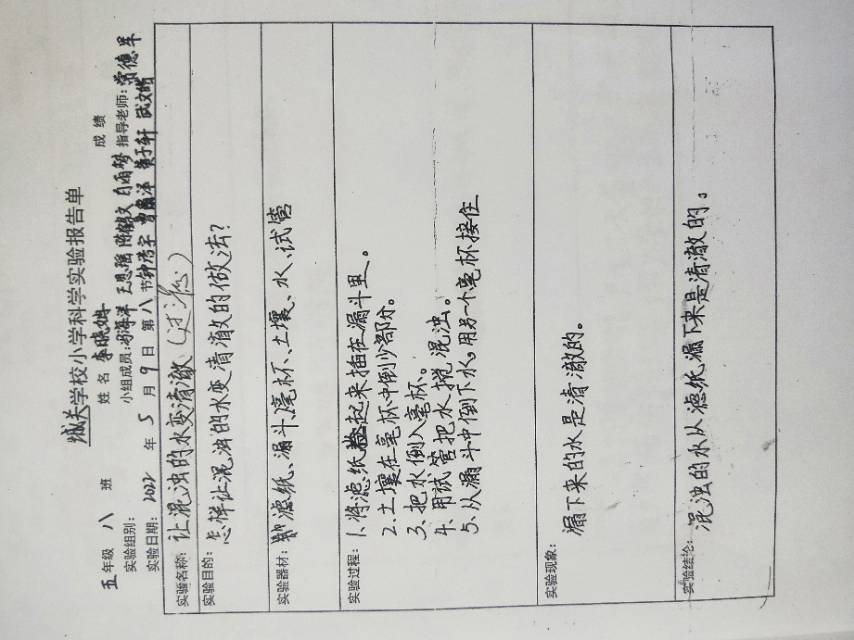 城关学校小学科学实验报告单
五年级 八 班 姓名 李晓娟 成绩
实验组别: 小组成员: 王思瑶 指导老师:
实验日期: 2022 年 5 月 9 日 第 八 节
实验名称: 让混浊的水变清澈(过滤)
实验目的: 怎样让混浊的水变清澈的做法?
实验器材: 滤纸、漏斗、毫杯、土壤、水、试管
实验过程: 1.将滤纸卷起来插在漏斗里。
2.土壤在毫杯中倒少部分。
3.把水倒入毫杯。
4.用试管把水搅混浊。
5.从漏斗中倒下水,用另一个毫杯接住
实验现象:
漏下来的水是清澈的。
实验结论: 混浊的水从滤纸漏下来是清澈的。